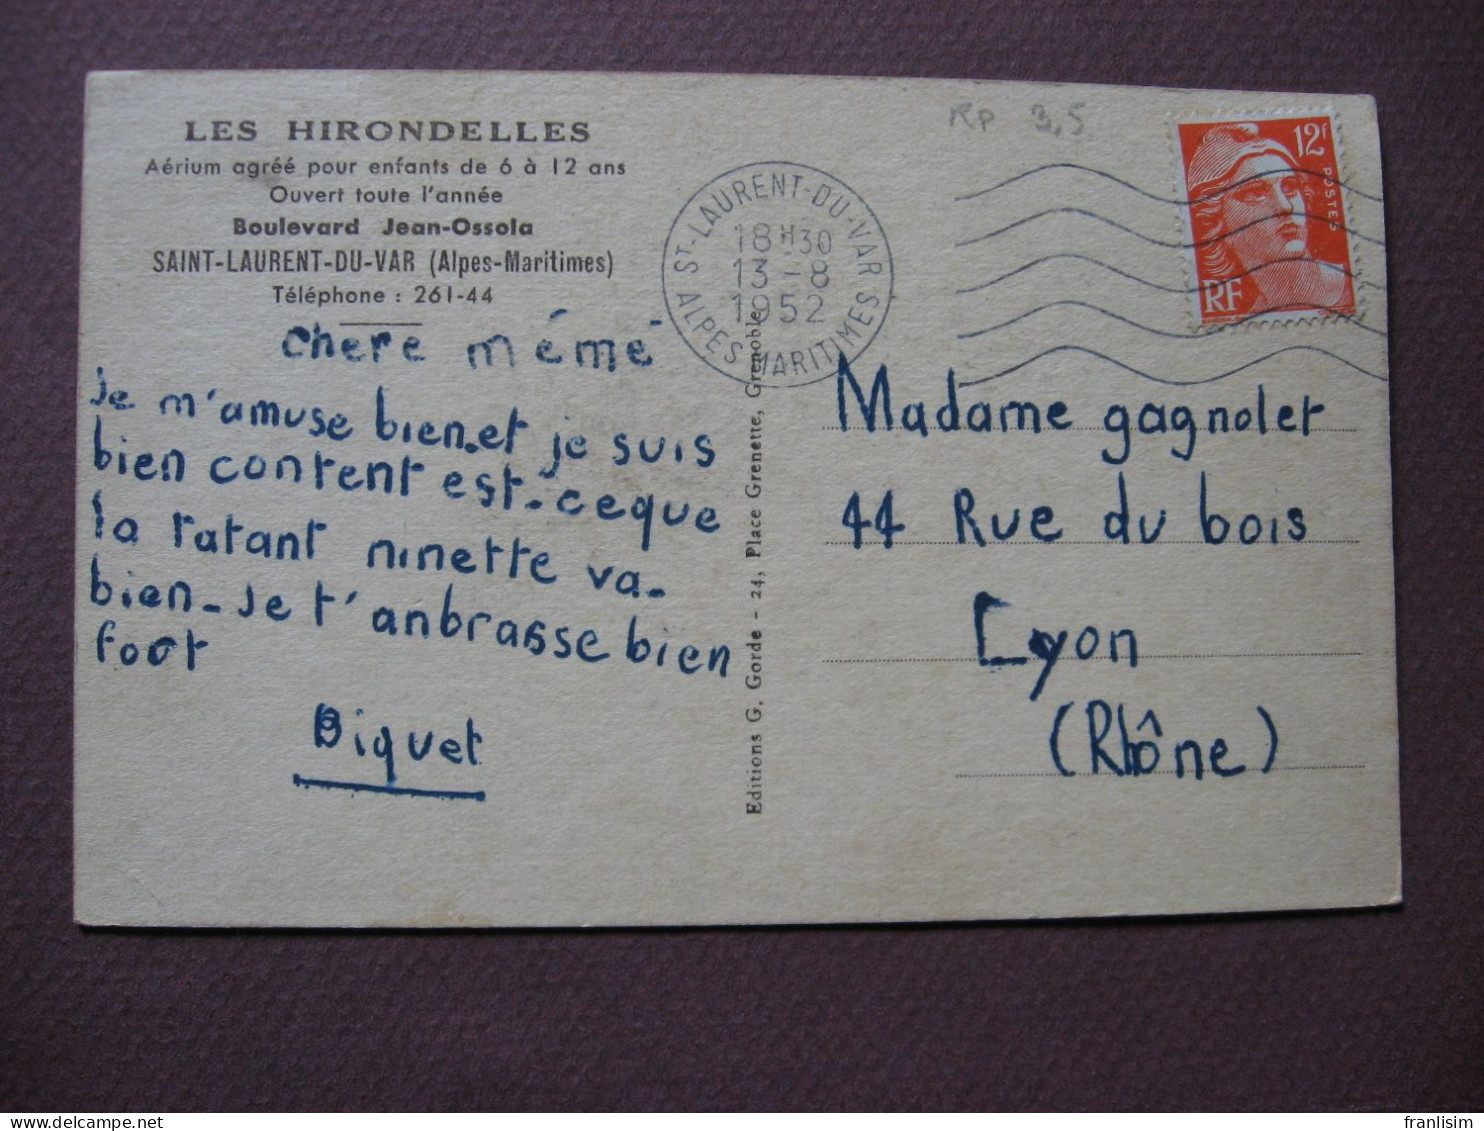 LES HIRONDELLES
Aérium agréé pour enfants de 6 à 12 ans
Ouvert toute l'année
Boulevard Jean-Ossola
SAINT-LAURENT-DU-VAR (Alpes-Maritimes)
Téléphone : 261-44
chere mémé
Je m'amuse bien.et je suis
bien content est-ceque
la tatant ninette va-
bien-Je t'anbrasse bien
foort
Biquet
Editions G. Gorde - 24, Place Grenette, Grenoble
RP 3,5
ST-LAURENT-DU-VAR
18H30
13-8
1952
ALPES MARITIMES
12F
POSTES
RF
Madame gagnolet
44 Rue du bois
Lyon
(Rhône)
franlisim